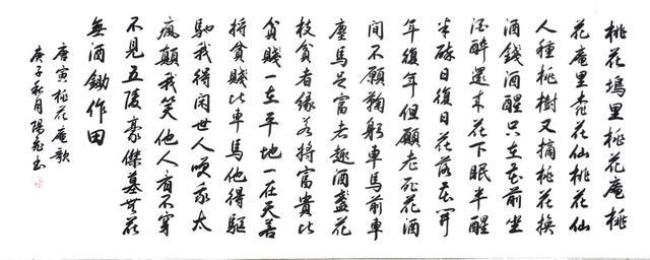 桃花塢里桃花庵桃
花庵里桃花仙桃花仙
人種桃樹又摘桃花换
酒錢酒醒只在花前坐
酒醉還来花下眠半醒
半醉日復日花落花開
年復年但願老死花酒
間不願鞠躬車馬前車
塵馬足富者趣酒盞花
枝貧者緣若将富貴比
貧賤一在平地一在天若
将貧賤比車馬他得驅
馳我得闲世人笑我太
瘋顛我笑他人看不穿
不見五陵豪傑墓無花
無酒鋤作田
唐寅桃花庵歌
庚子秋月陽書